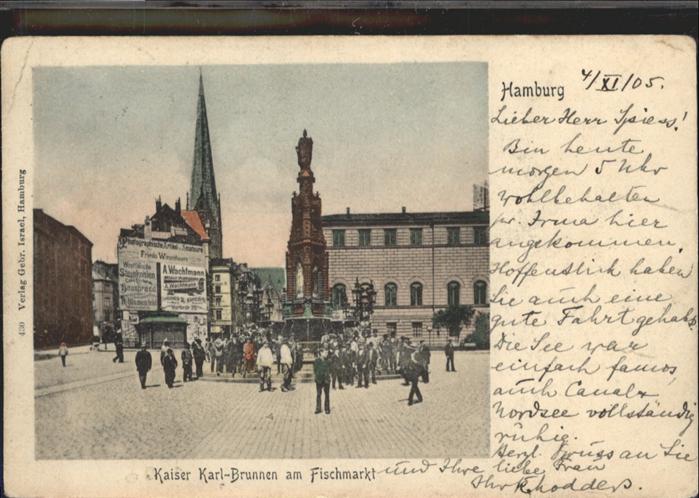 Hamburg 4/XI/05.
Lieber Herr Spiess!
Bin heute
morgen 5 Uhr
wohlbehalten
hier
angekommen.
Hoffentlich haben
Sie auch eine
gute Fahrt gehabt,
die See war
einfach famos,
auch Canal u
Nordsee vollständig
ruhig.
Herzl. Gruss an Sie
und Ihre liebe Frau
Ihr
Kaiser Karl-Brunnen am Fischmarkt
430 Verlag Gebr. Israel, Hamburg
Photographische Artikel
A. Wachtmann